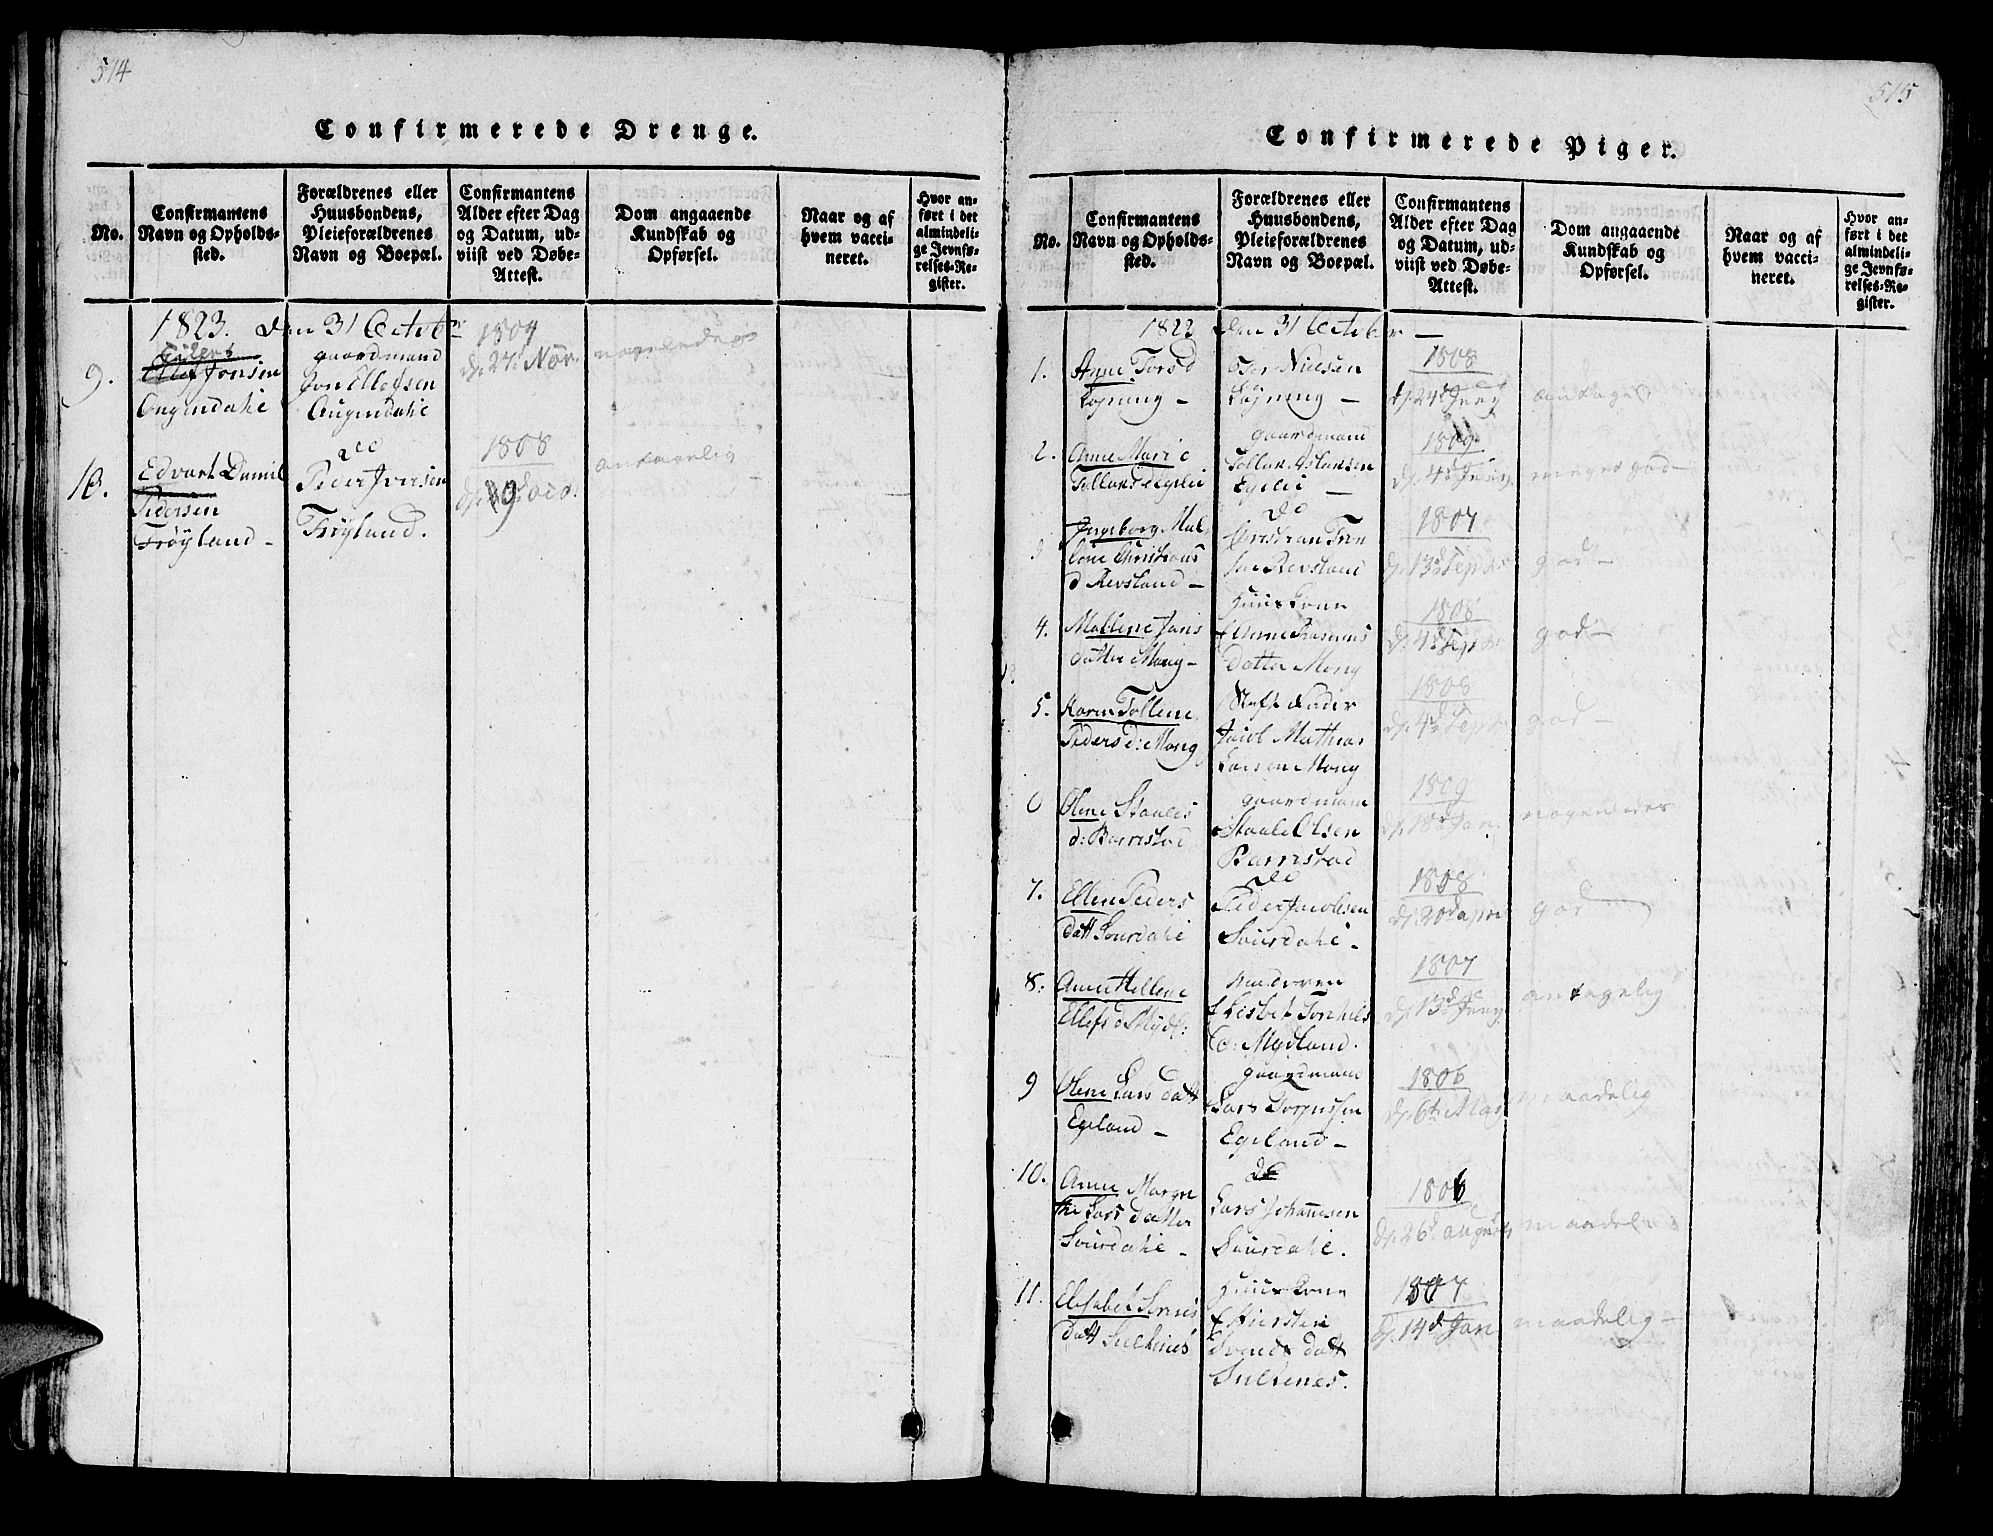 514
Confirmerede Drenge.
No.
Confirmantens
Navn og Opholds-
sted.
Forældrenes eller
Huusbondens,
Pleieforældrenes
Navn og Boepæl.
Confirmantens
Alder efter Dag
og Datum, ud-
viist ved Døbe-
Attest.
Dom angaaende
Kundskab og
Opførsel.
Naar og af
hvem vacci-
neret.
Hvor an-
ført i det
almindeli-
ge Jevnfø-
relses-Re-
gister.
1823. Den 31 October
9.
Ellef Jonsen
Augendahl
gaardmand
Jon Ellefsen
Augendahl
1807
dp. 27d Nov.
nogenledes
10.
Edvart Daniel
Pedersen
Frøyland -
do
Peder Iversen
Frøyland.
1808
antagelig
515
Confirmerede Piger.
No.
Confirmantens
Navn og Opholds-
sted.
Forældrenes eller
Huusbondens,
Pleieforældrenes
Navn og Boepæl.
Confirmantens
Alder efter Dag
og Datum, ud-
viist ved Døbe-
Attest.
Dom angaaende
Kundskab og
Opførsel.
Naar og af
hvem vacci-
neret.
Hvor an-
ført i det
almindeli-
ge Jevnfø-
relses-Re-
gister.
1822 Den 31 October -
1.
Anne Torsd
Løyning -
Tor Nielsen
Løyning -
1808
dp. 24d Juny
2.
Anne Marie
Tollavsd Egelie
gaardmand
Tollav Aslaksen
Egelie -
1809
dp. 4d Juny
meget god -
3
Ingeborg Mal
lene Christians
d Refsland -
do
Christian
Refsland
1807
dp. 13d Septr
god -
4.
Mallene Jans
datter Mong -
Huuskone
Anne Rasmus
datter Mong
1808
dp. 4d Septr.
god -
5.
Karen Tollene
Peders d: Mong
Stiffader
Jacob Mathias
Larsen Mong
1808
dp. 4d Septr
god
6
Olene Staales
d: Barrestad
gaardmand
Staale Olsen
Barrestad
1809
dp. 18d Jan.
nogenledes
7.
Ellen Peders
datt Suurdahl
do
Peder Jacobsen
Suurdahl -
1808
dp. 20d apr
god
8.
Anne Hellene
Ellefsd Mydl:
Moderen
Lisbet Torkels
d: Mydland.
1807
dp. 13d Juny
antagelig
9
Olene Lars datt
Egeland -
gaardmand
Lars Torgersen
Egeland -
1806
dp. 6d May
maadelig
10.
Anne Margre
the Lars datter
Suurdahl -
do
Lars Johannesen
Suurdahl.
1806
dp. 26d august
maadelig
11.
Elisabet Sørens
datt Sulenes
Huuskone
Kiersten
Svends datt
Sulenes.
1807
dp. 14d Jan
maadelig -